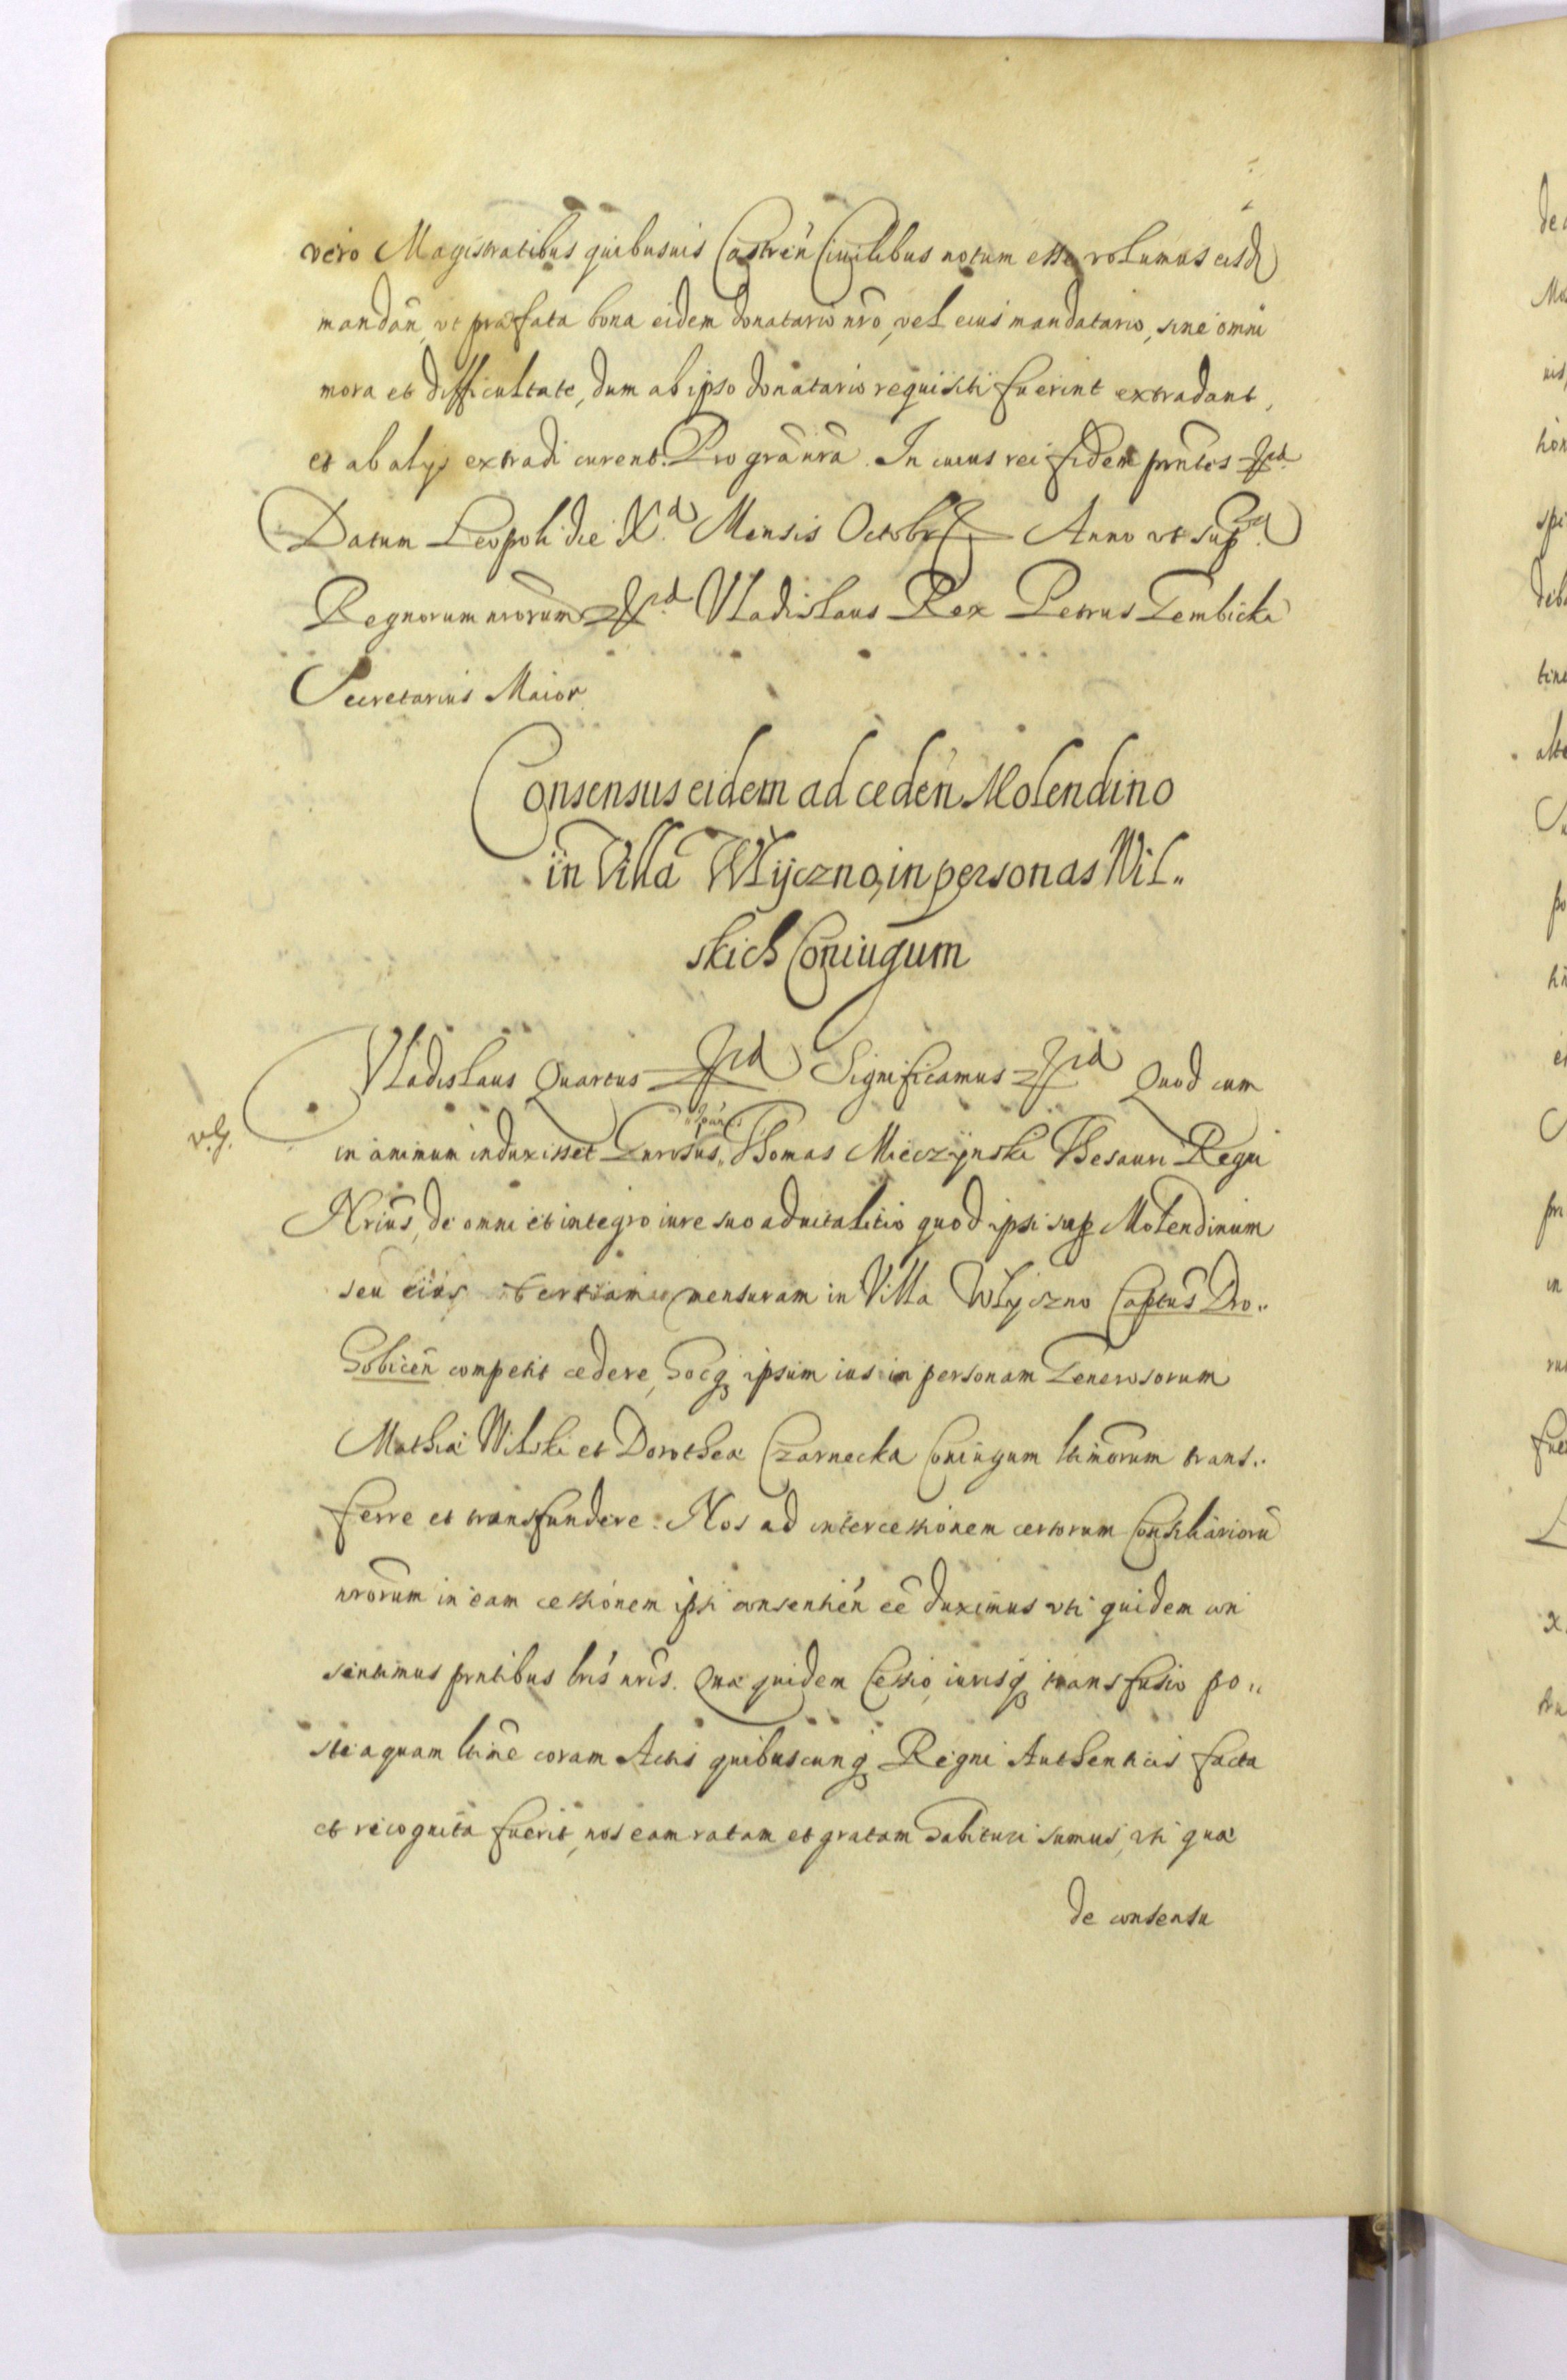 vero Magistratibus quibusuis Castren̄ Ciuilibus notum esse volumus eisd
mandan̄, vt præfata bona eidem donatario nr̄o, vel eius mandatario, sine omni
mora et difficultate, dum ab ipso donatario requisiti fuerint extradant,
et ab alijs extradi curent. Pro gr̄a nr̄a. In cuius rei fidem prn̄tes
Datum Leopoli die X.ᵃ Mensis Octobr Anno vt sup.ᵃ
Regnorum nrorum̄ Vladislaus Rex Petrus Gembicki
Secretarius Maior
Consensus eidem ad ceden̄ Molendino
in Villa Włyczno, in personas Wil„
skich Coniugum
Vladislaus Quartus Significamus Quod cum
v.g.
in animum induxisset Gnrosus„ Thomas Mieczÿnski Thesauri Regni
Nrius, de omni et integro iure suo aduitalitio quod ipsi sup Molendinum
seu eius tertiam mensuram in Villa Włyczno Captus̄ Dro„
hobicen̄ competit cedere, hocq ipsum ius in personam Generosorum
Mathiæ Wilski et Dorotheæ Czarnecka Coniugum ltimor̄um trans„
ferre et transfundere. Nos ad intercessionem certorum Consiliariorū
nrorum̄ in eam cessionem ipsi consentien̄ eē duximus vti quidem con
sentimus prntibus lris nris. Quæ quidem Cessio, iurisq transfusio po„
steaquam ltime coram Actis quibuscunq Regni Authenticis facta
et recognita fuerit, nos eam ratam et gratam habituri sumus, vti quæ
de consensu